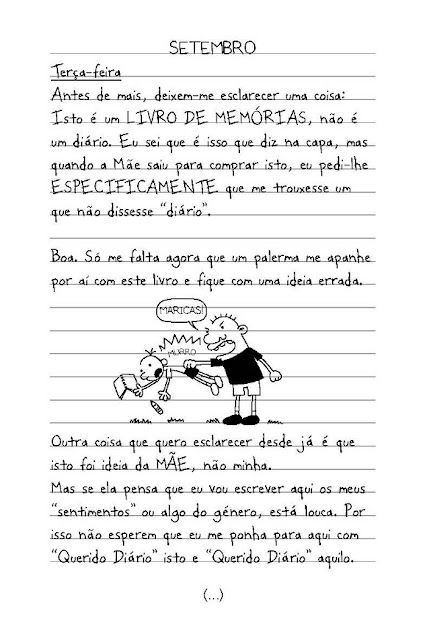 SETEMBRO
Terça-feira
Antes de mais, deixem-me esclarecer uma coisa:
Isto é um LIVRO DE MEMÓRIAS, não é
um diário. Eu sei que é isso que diz na capa, mas
quando a Mãe saiu para comprar isto, eu pedi-lhe
ESPECIFICAMENTE que me trouxesse um
que não dissesse "diário".
Boa. Só me falta agora que um palerma me apanhe
por aí com este livro e fique com uma ideia errada.
MARICAS!
MURRO
Outra coisa que quero esclarecer desde já é que
isto foi ideia da MÃE, não minha.
Mas se ela pensa que eu vou escrever aqui os meus
"sentimentos" ou algo do género, está louca. Por
isso não esperem que eu me ponha para aqui com
"Querido Diário" isto e "Querido Diário" aquilo.
(...)